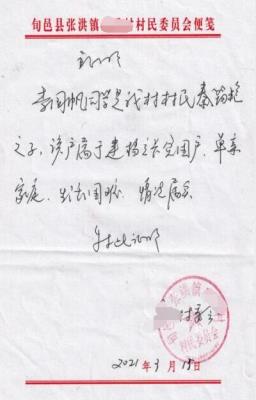 旬邑县张洪镇 村村民委员会便笺
证明
李国帆同学是我村村民秦 艳
之子，该户属于建档立卡贫困户，单亲
家庭，生活困难，情况属实
特此证明
张洪镇
村委会
村民委员会
2021年3月15日